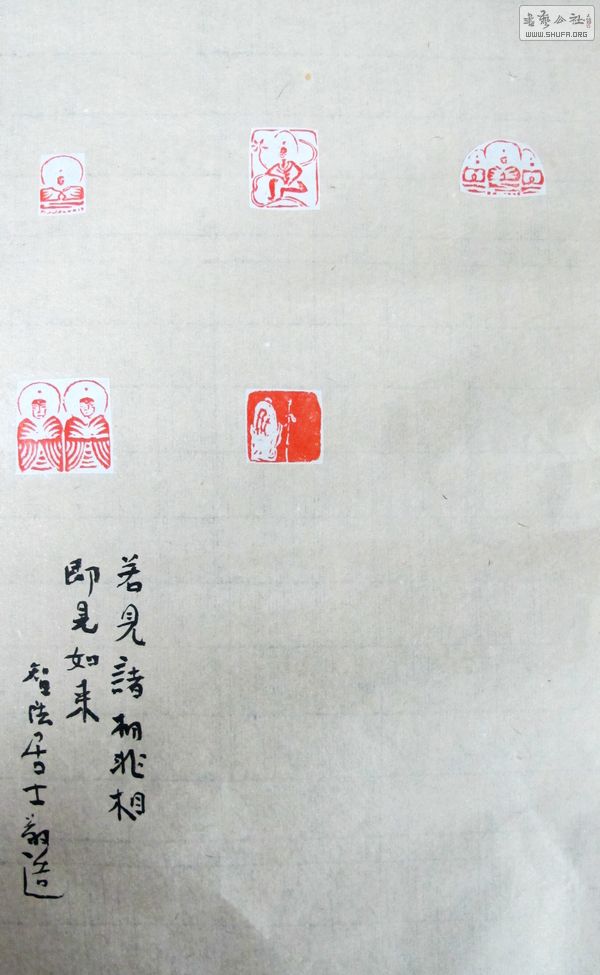 书艺公社
WWW.SHUFA.ORG
若見諸相非相
即見如来
智浩居士敬造